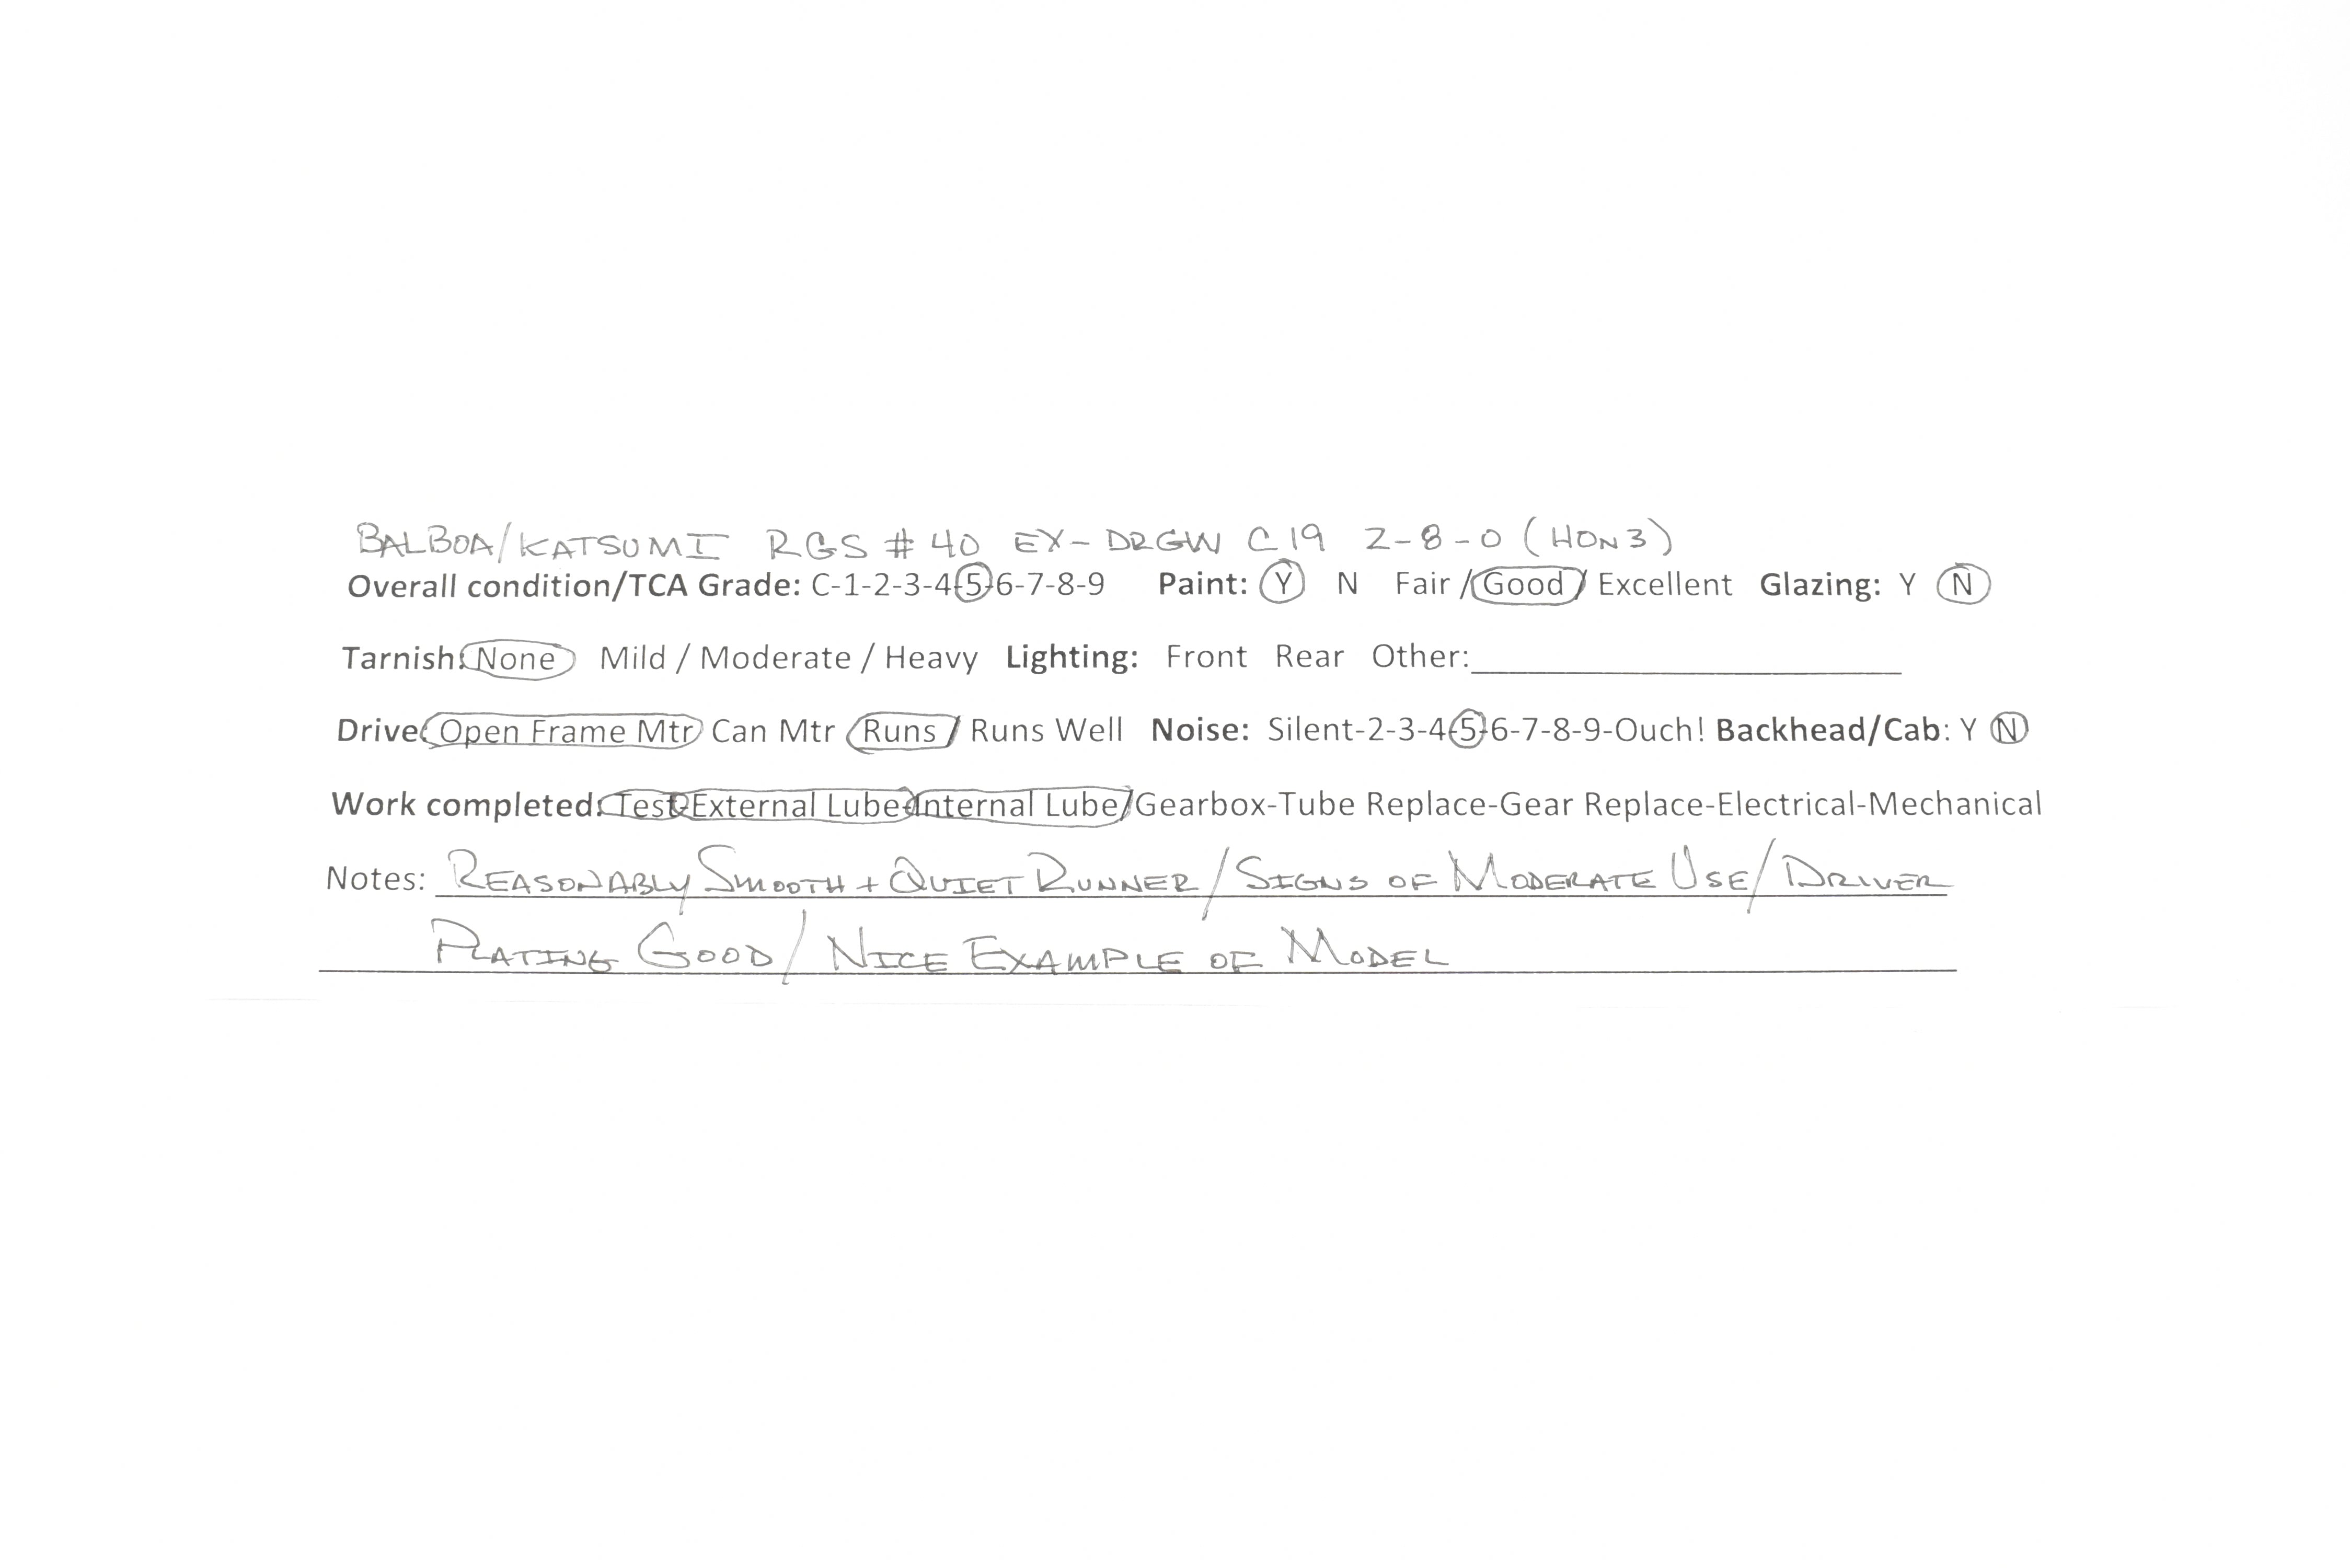 BALBOA/KATSUMI RGS # 40 EX-DRGW C19 2-8-0 (HON3)
Overall condition/TCA Grade: C-1-2-3-4-5-6-7-8-9 Paint: Y N Fair / Good / Excellent Glazing: Y N
Tarnish: None Mild / Moderate / Heavy Lighting: Front Rear Other:
Drive: Open Frame Mtr Can Mtr Runs / Runs Well Noise: Silent-2-3-4-5-6-7-8-9-Ouch! Backhead/Cab: Y N
Work completed: Test-External Lube-Internal Lube/Gearbox-Tube Replace-Gear Replace-Electrical-Mechanical
Notes: REASONABLY SMOOTH + QUIET RUNNER / SIGNS OF MODERATE USE / DRIVER
PLATING GOOD / NICE EXAMPLE OF MODEL